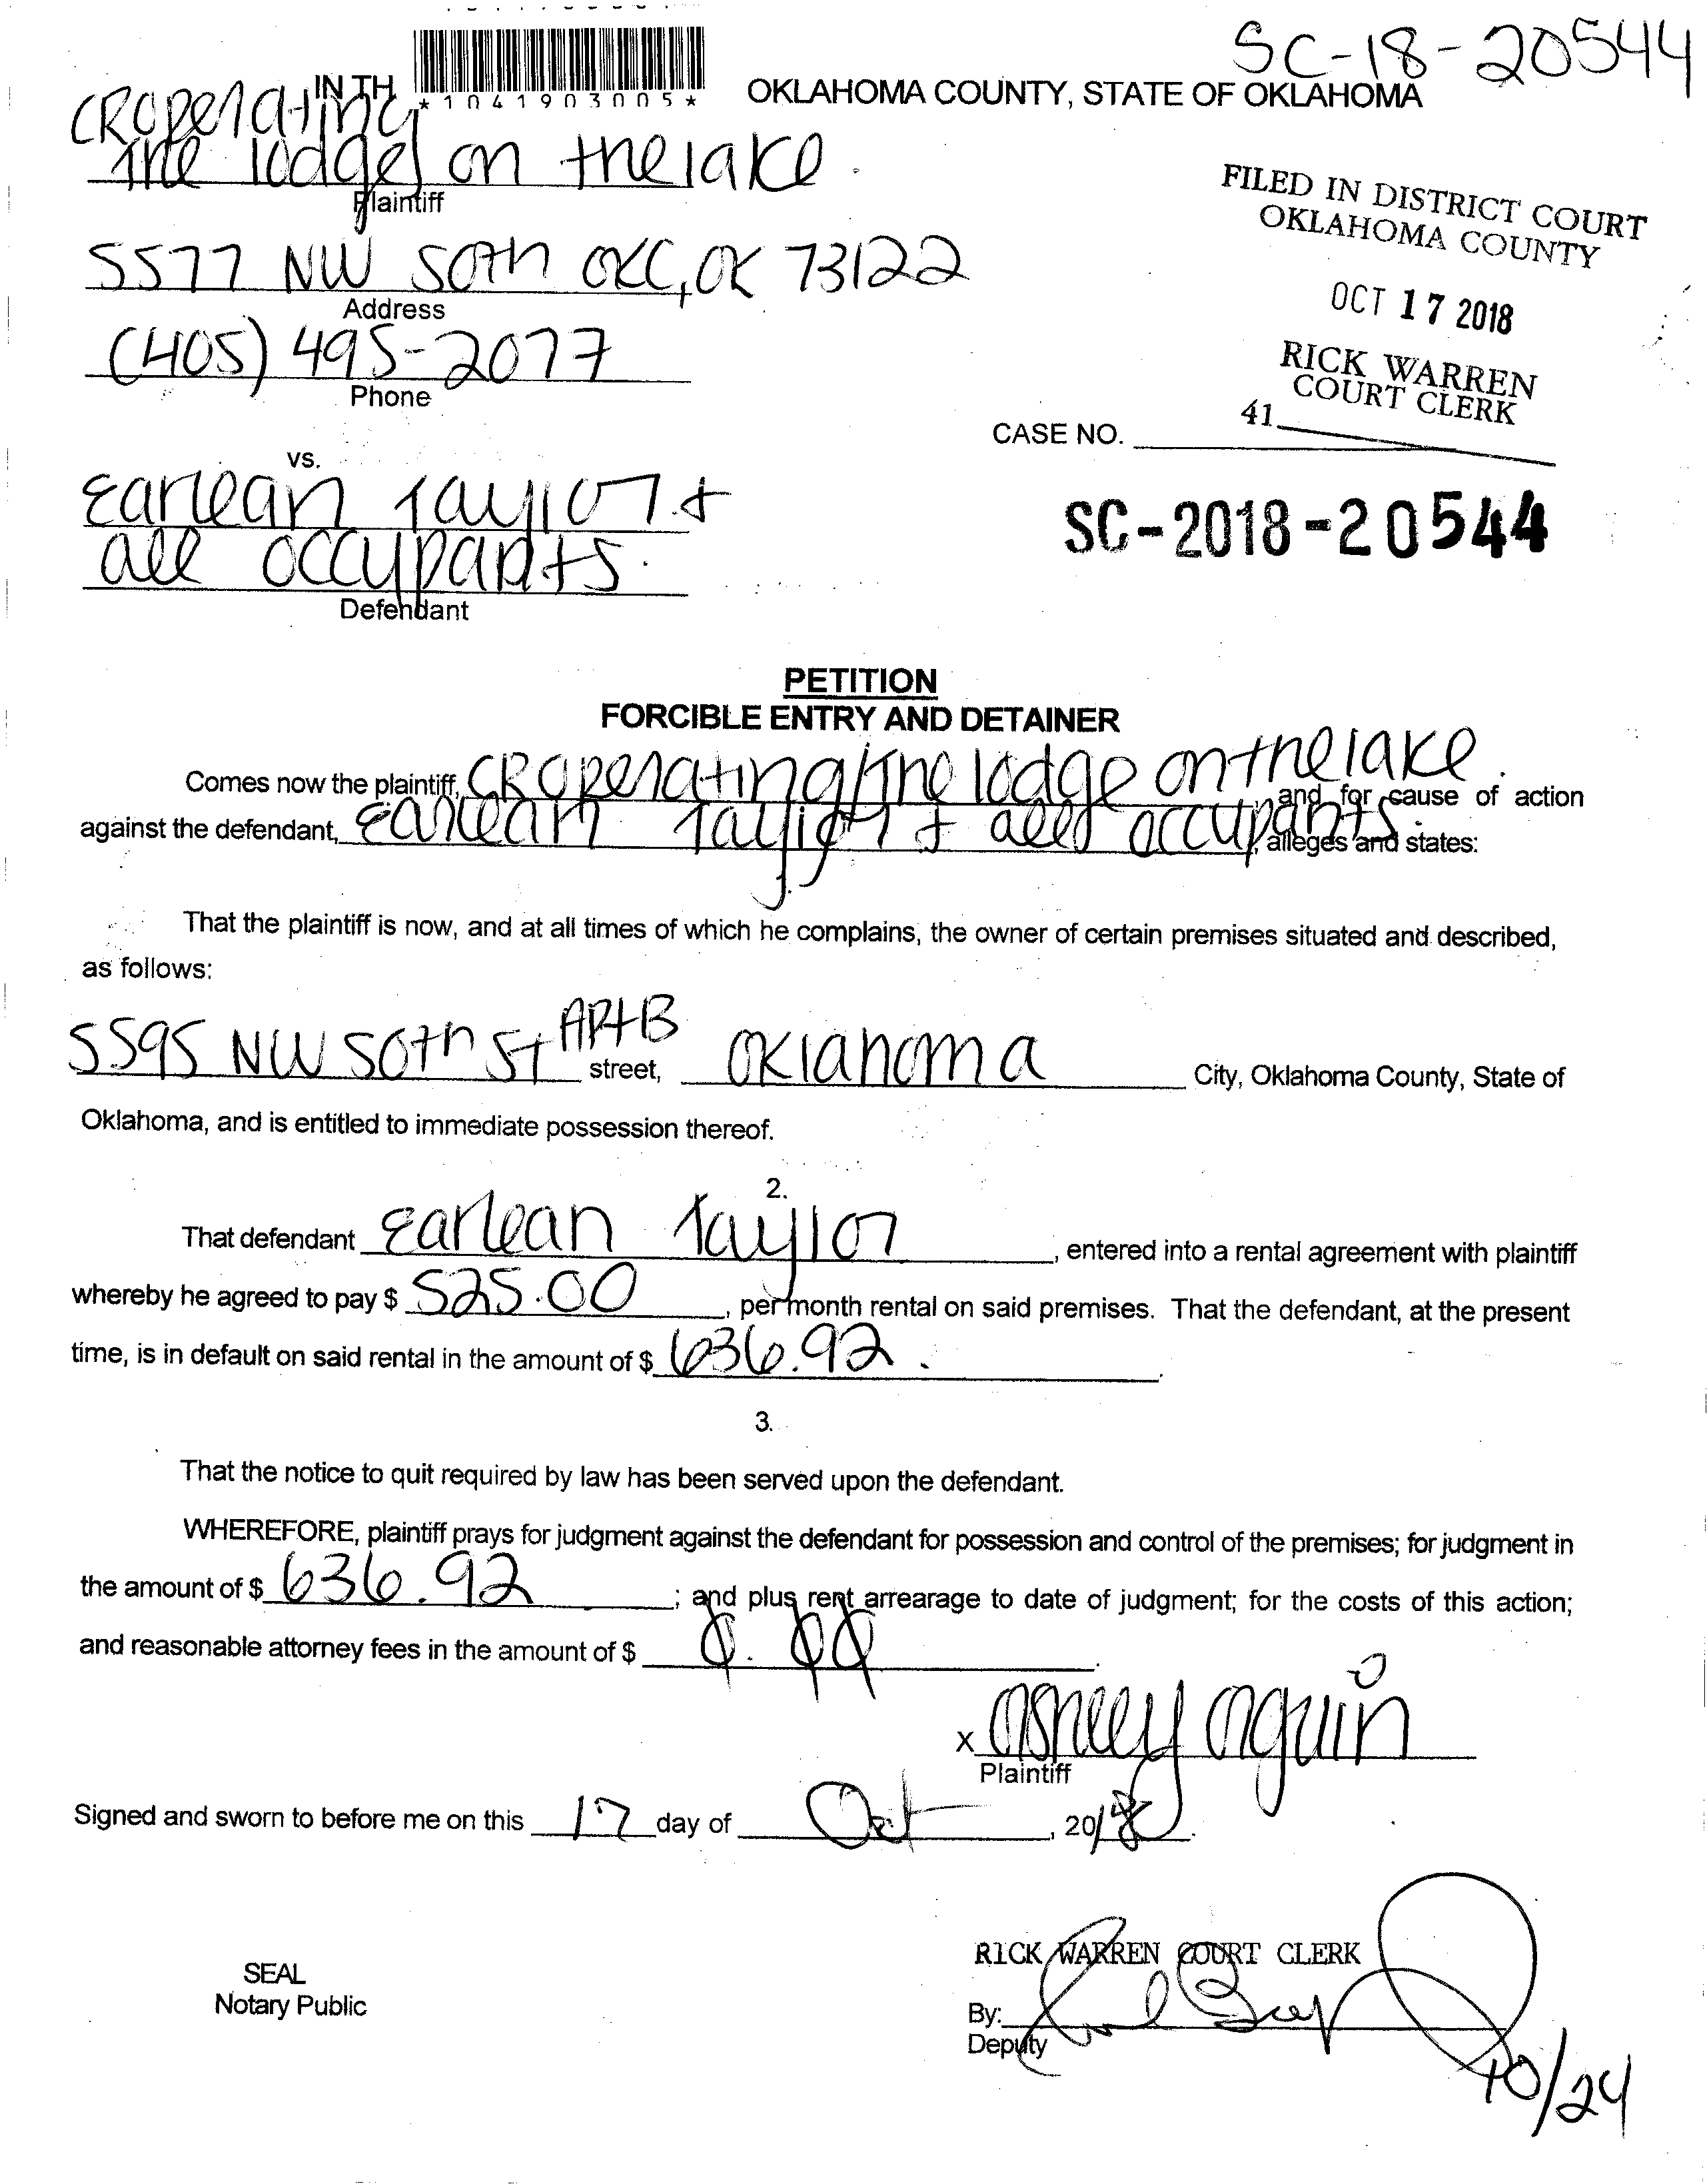 SC-18-20544
IN TH
*1041903005*
OKLAHOMA COUNTY, STATE OF OKLAHOMA
CROperating
The lodge on the lake.
Plaintiff
FILED IN DISTRICT COURT
OKLAHOMA COUNTY
5577 NW 50th OKC, OK 73122
Address
OCT 17 2018
(405) 495-2077
Phone
RICK WARREN
COURT CLERK
41
CASE NO.
vs.
Earlean Taylor +
all occupants.
Defendant
SC-2018-20544
PETITION
FORCIBLE ENTRY AND DETAINER
Comes now the plaintiff, CROperating/The lodge on the lake. and for cause of action
against the defendant, Earlean Taylor + all occupants. alleges and states:
That the plaintiff is now, and at all times of which he complains, the owner of certain premises situated and described,
as follows:
5595 NW 50th St Apt B street, Oklahoma City, Oklahoma County, State of
Oklahoma, and is entitled to immediate possession thereof.
2.
That defendant Earlean Taylor, entered into a rental agreement with plaintiff
whereby he agreed to pay $ 525.00, per month rental on said premises. That the defendant, at the present
time, is in default on said rental in the amount of $ 636.92.
3.
That the notice to quit required by law has been served upon the defendant.
WHEREFORE, plaintiff prays for judgment against the defendant for possession and control of the premises; for judgment in
the amount of $ 636.92; and plus rent arrearage to date of judgment; for the costs of this action;
and reasonable attorney fees in the amount of $ 0.00.
x Ashley
Plaintiff
Signed and sworn to before me on this 17 day of Oct, 2018.
SEAL
Notary Public
RICK WARREN COURT CLERK
By:
Deputy
10/24